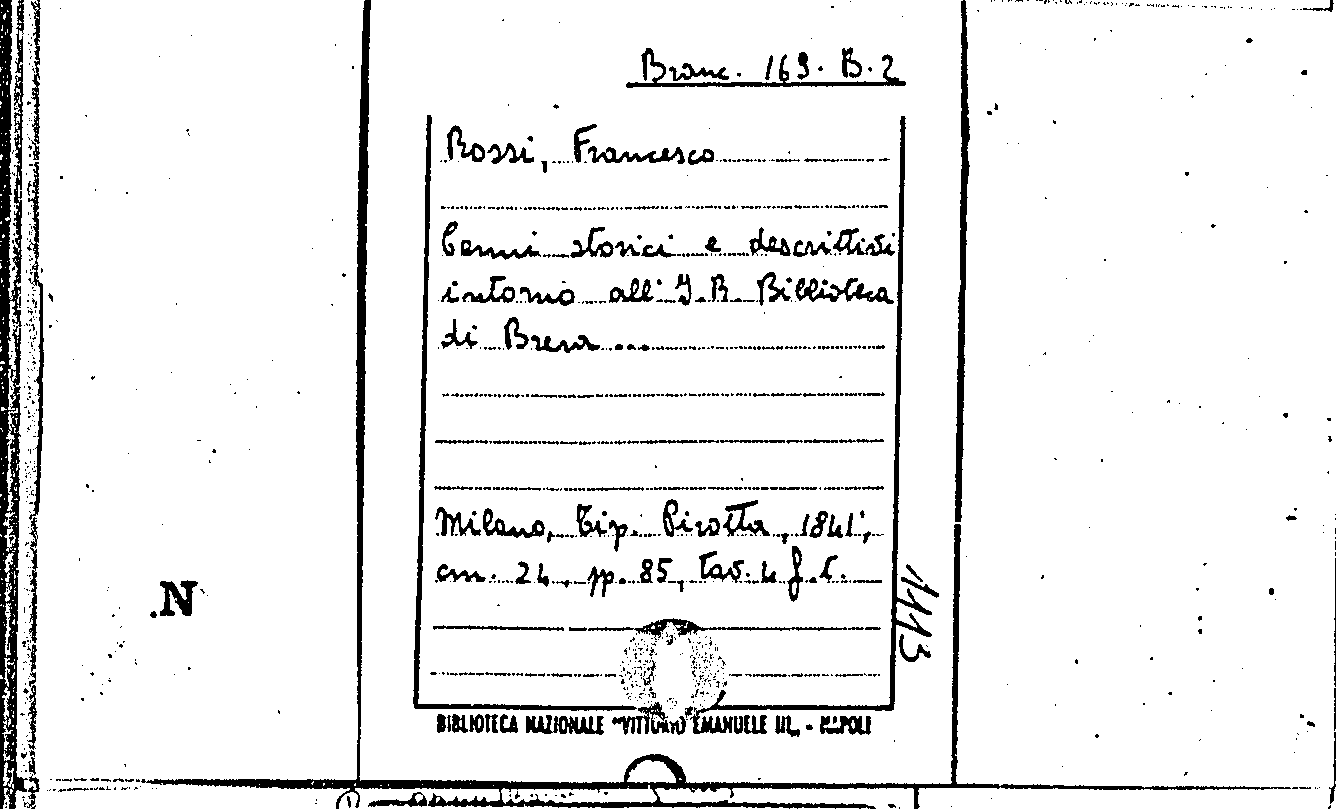 Branc. 169. B. 2
Rossi, Francesco
Cenni storici e descrittivi
intorno all' I. R. Biblioteca
di Brera ...
Milano, Tip. Pirotta, 1841;
cm. 24, pp. 85, tav. 4 f. t.
1113
.N
BIBLIOTECA NAZIONALE "VITTORIO EMANUELE III„ - NAPOLI